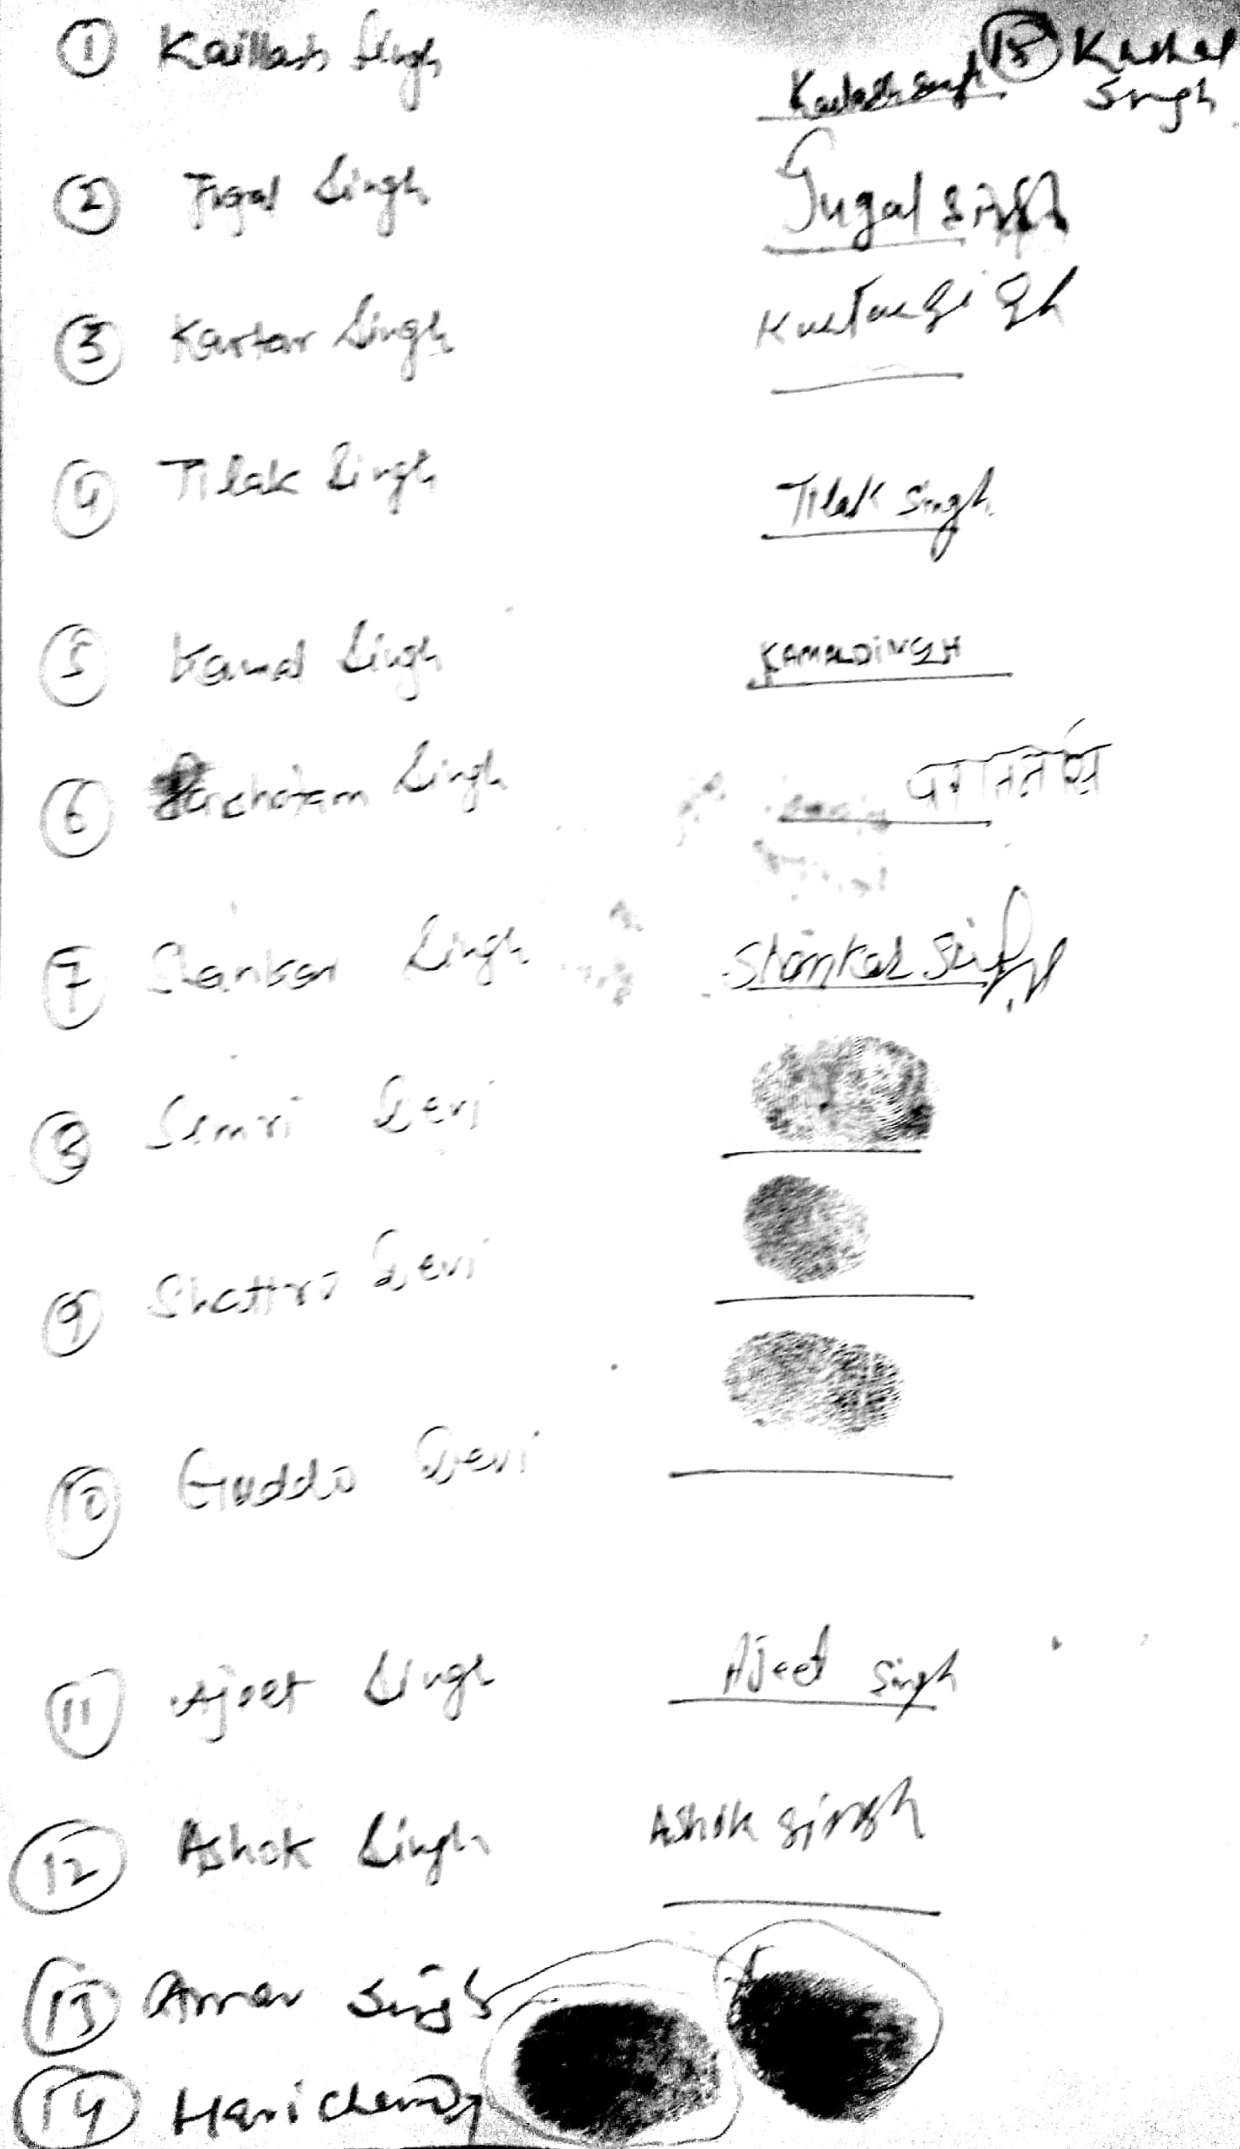 ① Kaillash Singh Kailash Singh ⑮ Kushal
Singh
② Jugal Singh Jugal Singh
③ Kartar Singh Kartar Singh
④ Tilak Singh Tilak Singh
⑤ Kamal Singh KAMALSINGH
⑥ Parshotam Singh
⑦ Shankar Singh Shankar Singh
⑧ Simri Devi
⑨ Shattro Devi
⑩ Guddo Devi
⑪ Ajeet Singh Ajeet Singh
⑫ Ashok Singh Ashok Singh
⑬ Amar Singh
⑭ Harichand